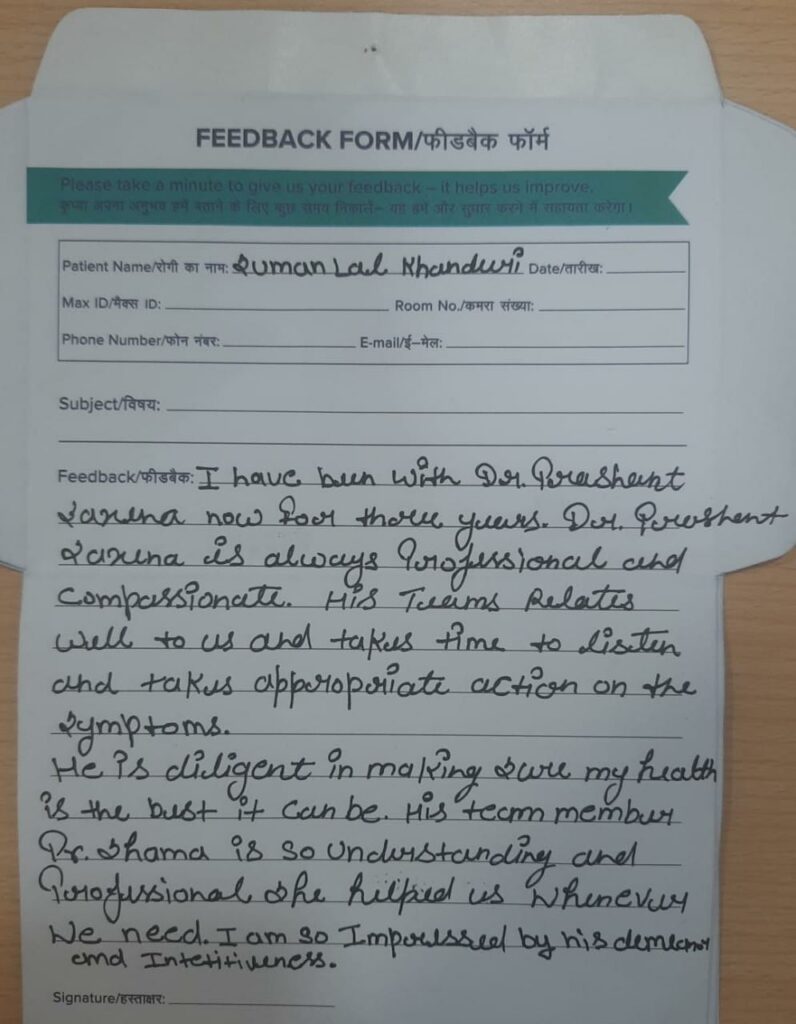 FEEDBACK FORM/फीडबैक फॉर्म
Please take a minute to give us your feedback – it helps us improve.
कृप्या अपना अनुभव हमें बताने के लिए कुछ समय निकालें– यह हमें और सुधार करने में सहायता करेगा।
Patient Name/रोगी का नाम: Suman Lal Khanduri Date/तारीख:
Max ID/मैक्स ID: Room No./कमरा संख्या:
Phone Number/फोन नंबर: E-mail/ई–मेल:
Subject/विषय:
Feedback/फीडबैक: I have been with Dr. Prashant
Saxena now for three years. Dr. Prashent
Saxena is always Professional and
Compassionate. His Teams Relates
well to us and takes time to listen
and takes appropriate action on the
Symptoms.
He is diligent in making sure my health
is the best it can be. His team member
Dr. Shama is so understanding and
Professional she helped us whenever
We need. I am so Impressed by his
and
Signature/हस्ताक्षर: